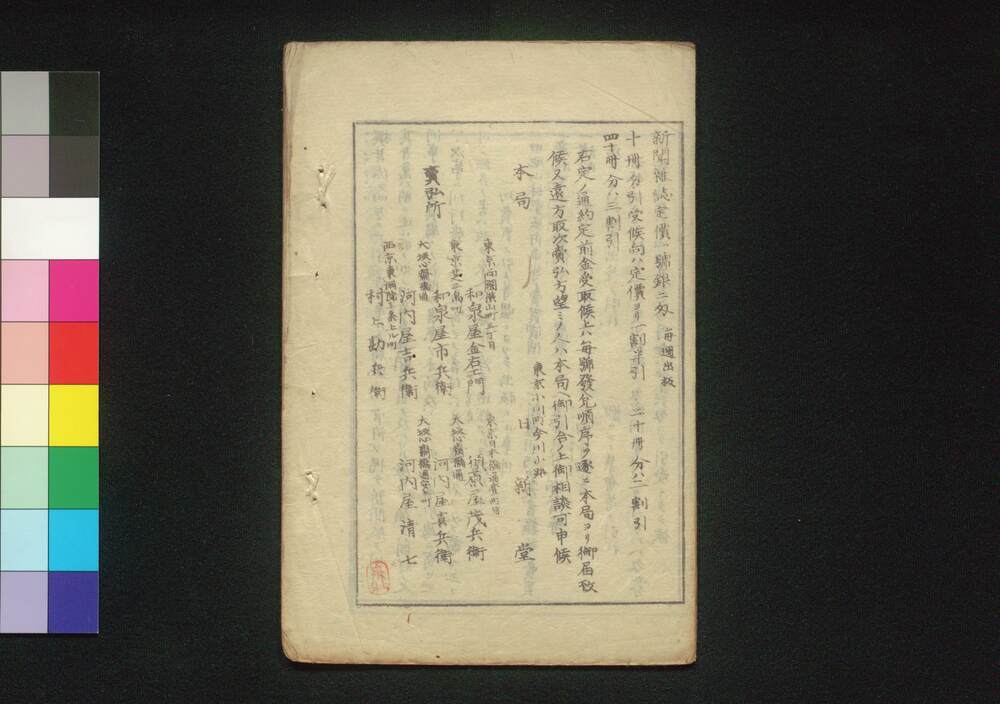 新聞雜誌定價一號銀二匁 每週出板
十冊分引受候向ハ定價ヨリ一割半引 二十冊分ハ二割引
四十冊分ハ三割引
右定ノ通約定前金受取候上ハ每號發兌順序ヲ逐ヒ本局ヨリ御届致
候又遠方取次賣弘方望ミノ人ハ本局ヘ御引合ノ上御相談可申候
東京小川町今川小路
本局 日新堂
賣弘所
東京両國横山町三丁目
和泉屋金右エ門
東京日本橋通
須原屋茂兵衛
東京芝三島町
和泉屋市兵衛
大坂心齋橋通
河内屋喜兵衛
大坂心齋橋通
河内屋吉兵衛
大坂心齋橋通
河内屋清七
西京東洞院三条上ル町
村上勘兵衛